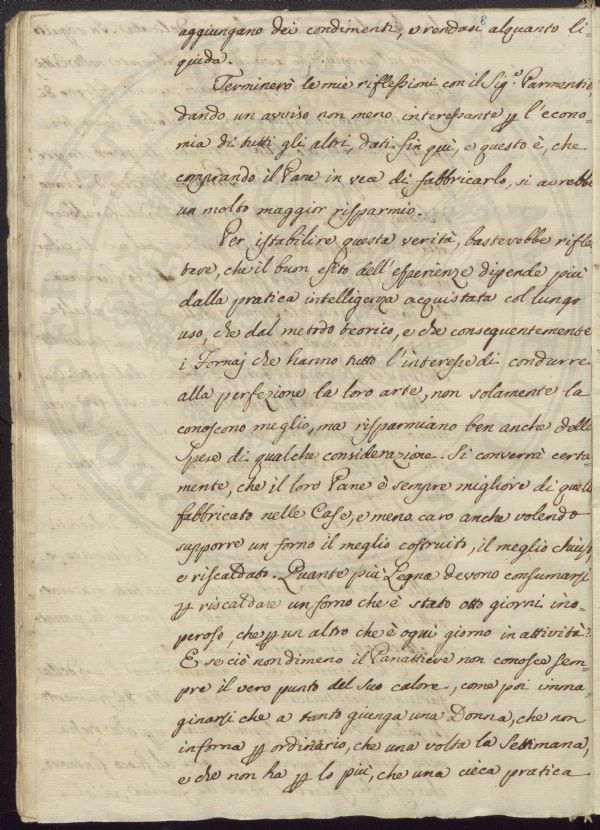 aggiungano dei condimenti, e rendasi alquanto li-
quida.
Terminerò le mie riflessioni con il Sig.r Parmentie
dando un avviso non meno interessante ꝑ l'econo-
mia di tutti gli altri, dati fin quì, e questo è, che
comprando il Pane in vece di fabbricarlo, si avrebbe
un molto maggior risparmio.
Per istabilire questa verità, bastevebbe rifle
tere, che il buon esito dell'esperienze dipende più
dalla pratica intelligenza acquistata col lungo
uso, che dal metodo teorico, e che conseguentemente
i Fornaj che hanno tutto l'interesse di condurre
alla perfezione la loro arte, non solamente la
conoscono meglio, ma risparmiano ben anche delle
spese di qualche considerazione. Si converrà certa-
mente, che il loro Pane è sempre migliore di quell
fabbricato nelle Case, e meno caro anche volendo
supporre un forno il meglio costruito, il meglio chiuso,
e riscaldato. Quante più Legna devono consumarsi
ꝑ riscaldare un forno che è stato otto giorni ino-
peroso, che ꝑ un altro che è ogni giorno in attività?
E se ciò non dimeno il Panattiere non conosce sem-
pre il vero punto del suo calore, come poi imma-
ginarsi che a tanto giunga una Donna, che non
inforna ꝑ ordinario, che una volta la Settimana,
e che non ha ꝑ lo più, che una cieca pratica